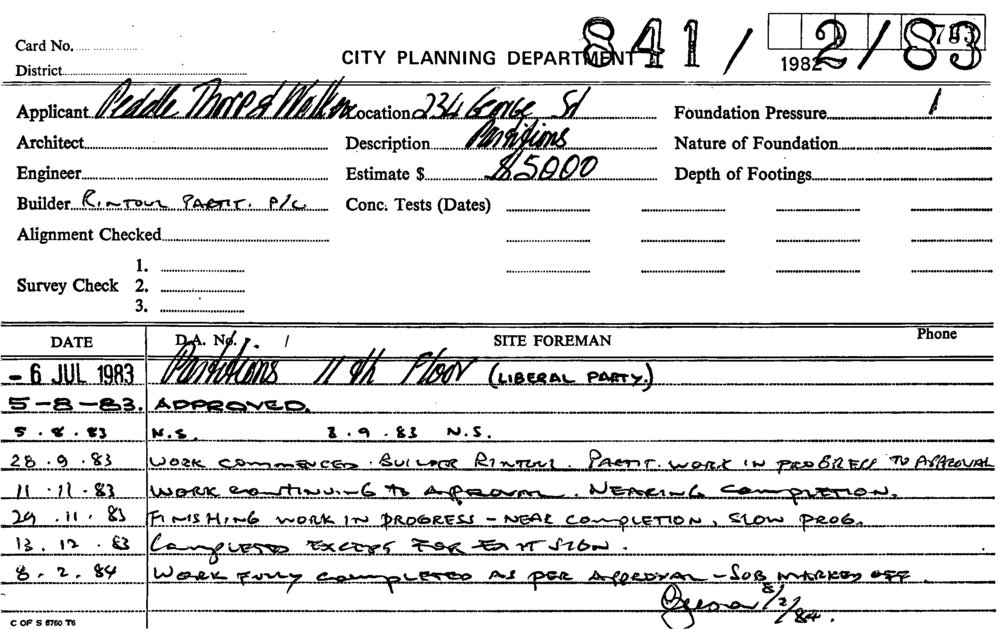 Card No.
CITY PLANNING DEPARTMENT 841 / 2/83
District
1982
Applicant Peddle Thorp & Walker Location 234 George St Foundation Pressure
Architect Description Partitions Nature of Foundation
Engineer Estimate $ $5000 Depth of Footings
Builder RINTOUL PARTIT. P/L. Conc. Tests (Dates)
Alignment Checked
1.
Survey Check 2.
3.
DATE D.A. No. / SITE FOREMAN Phone
- 6 JUL 1983 Partitions 11th Floor (LIBERAL PARTY.)
5-8-83. APPROVED.
5.8.83 N.S. 8.9.83 N.S.
28.9.83 WORK COMMENCED. BUILDER RINTOUL. PARTIT. WORK IN PROGRESS TO APPROVAL
11.11.83 WORK CONTINUING TO APPROVAL. NEARING COMPLETION.
29.11.83 FINISHING WORK IN PROGRESS - NEAR COMPLETION, SLOW PROG.
13.12.83 COMPLETED EXCEPT FOR EXIT SIGN.
8.2.84 WORK FULLY COMPLETED AS PER APPROVAL - JOB MARKED OFF.
8/2/84.
C OF S 6760 T6